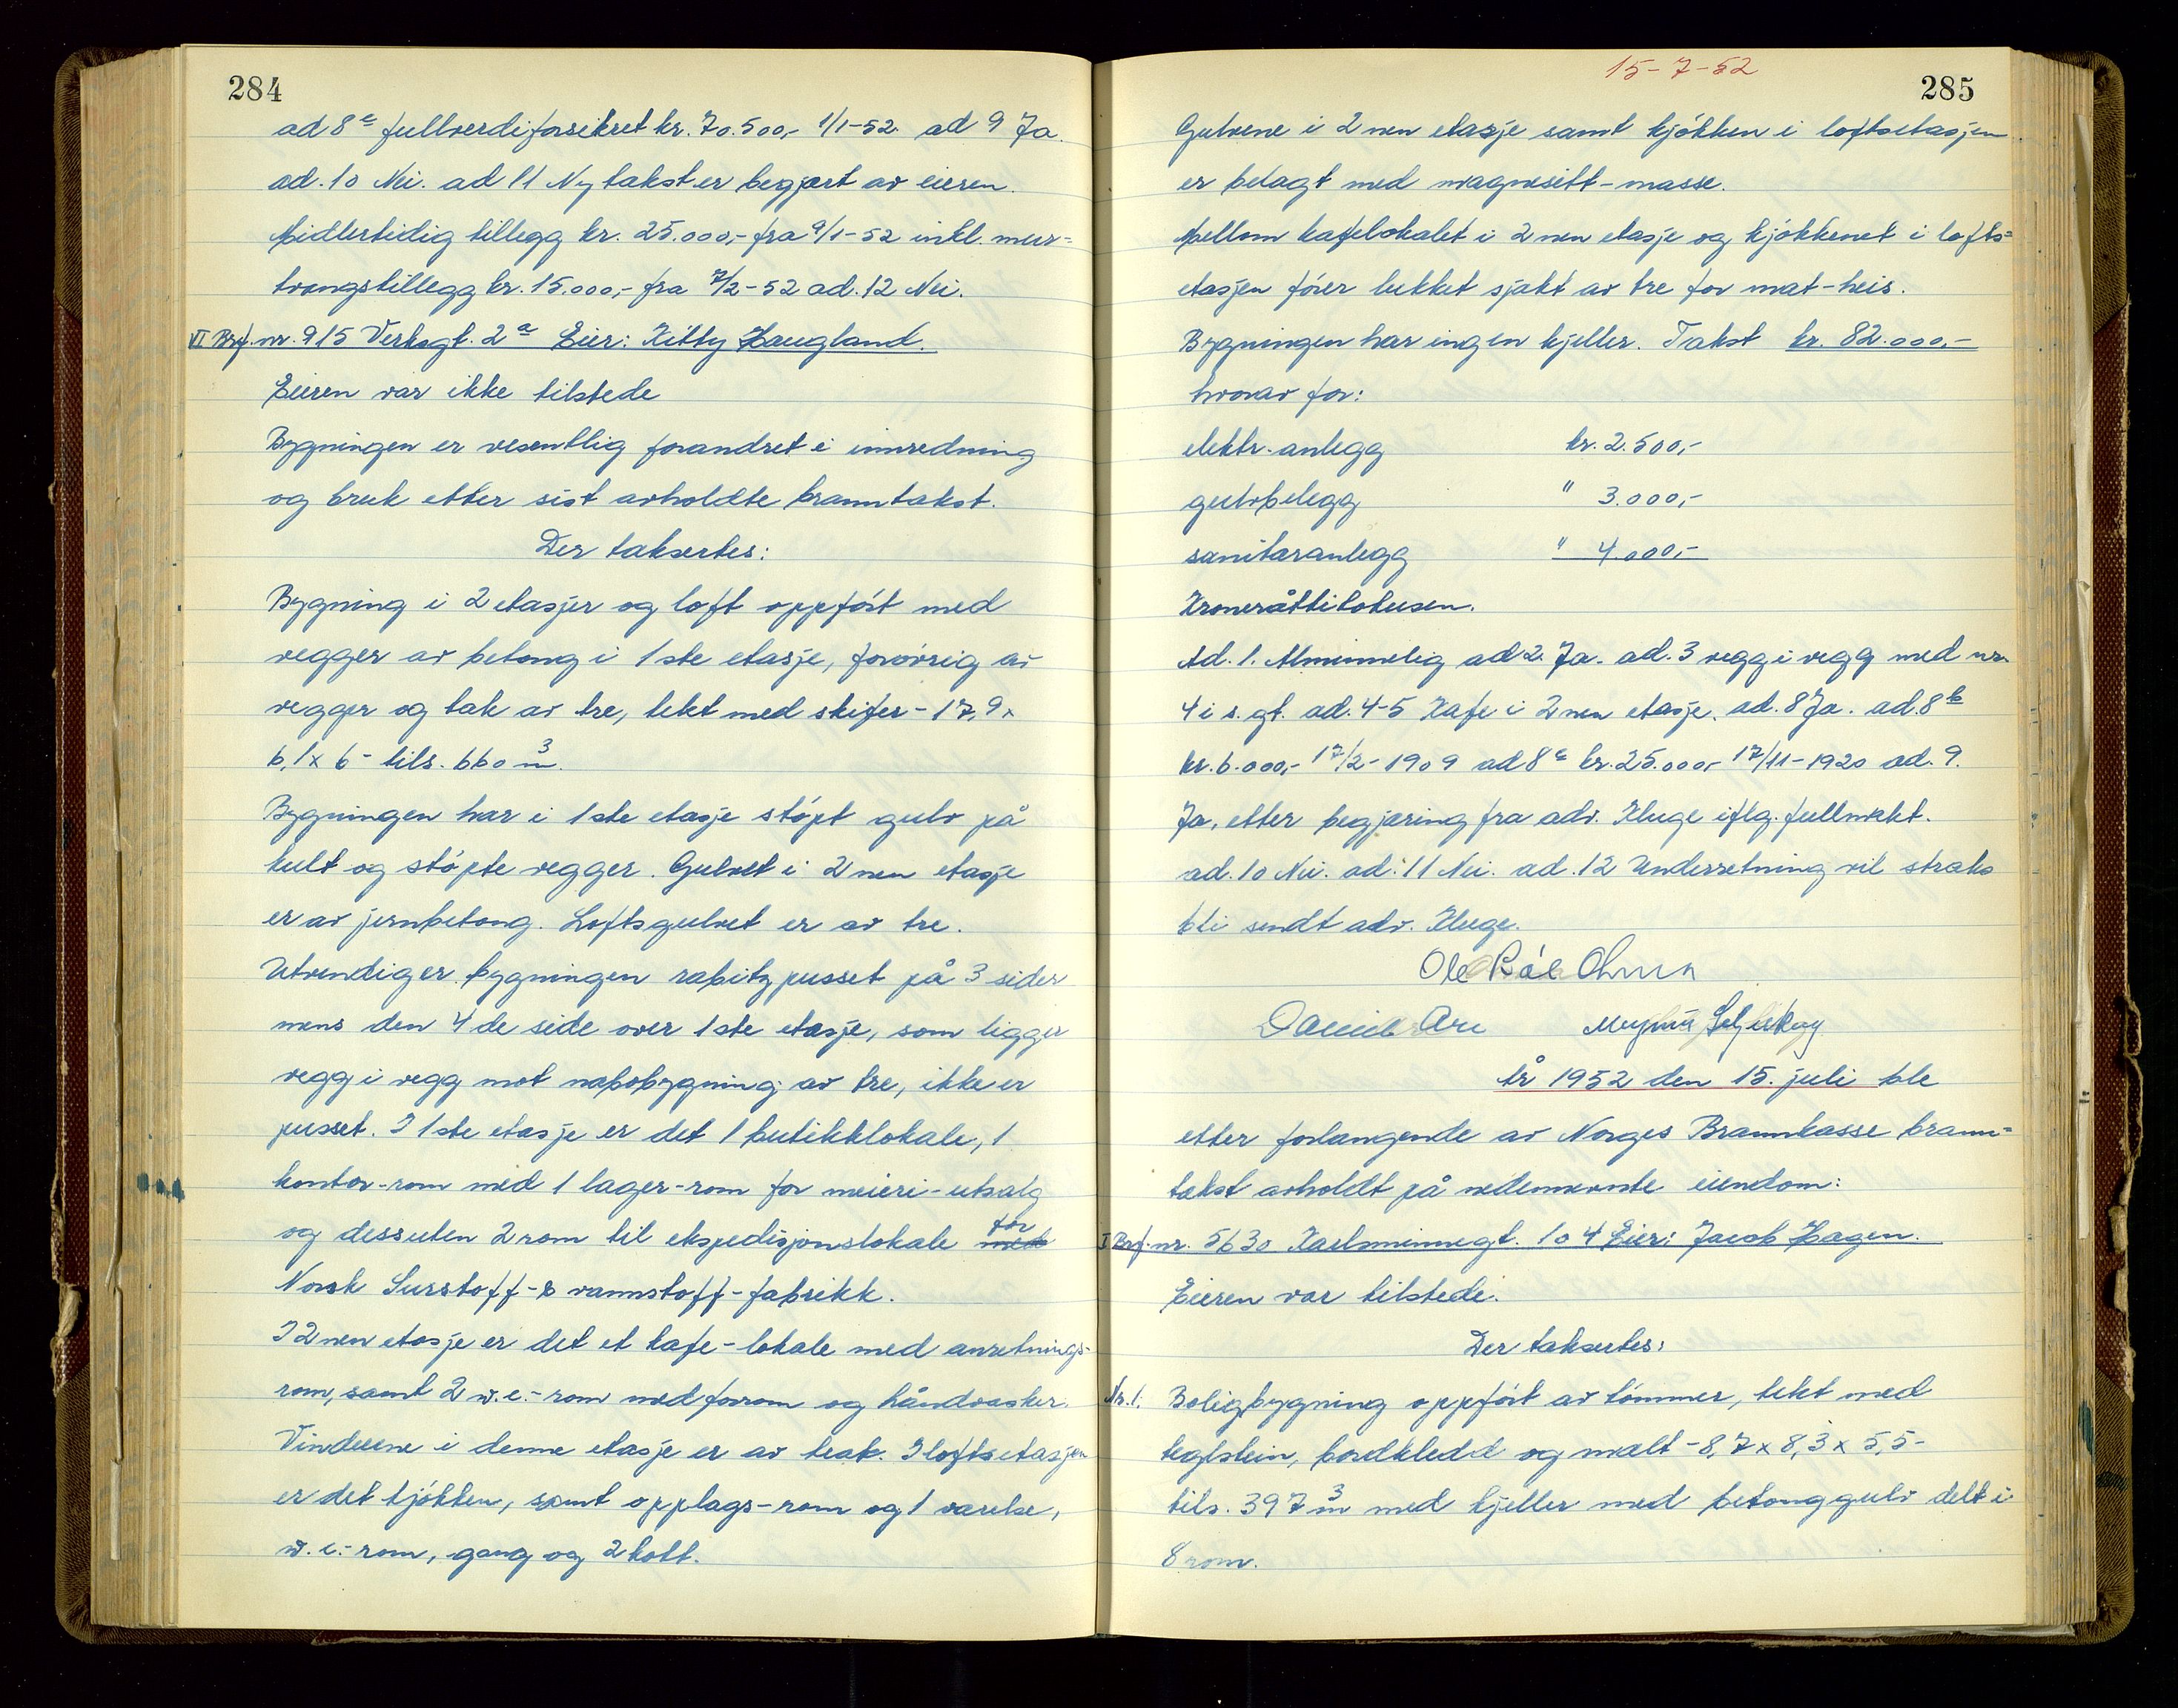 284
ad 8c fullverdiforsikret kr. 70.500,- 1/1-52. ad 9 Ja.
ad. 10 Nei. ad 11 Ny takst er begjært av eieren.
Midlertidig tillegg kr. 25.000,- fra 9/1-52 inkl. mur=
tvangstillegg kr. 15.000,- fra 7/2-52 ad. 12 Nei.
VI Brf. nr. 915 Verksgt. 2a Eier: Kitty Haugland.
Eieren var ikke tilstede
Bygningen er vesentlig forandret i innredning
og bruk etter sist avholdte branntakst.
Der taksertes:
Bygning i 2 etasjer og loft oppført med
vegger av betong i 1ste etasje, forøvrig av
vegger og tak av tre, tekt med skifer - 17,9 x
6,1 x 6 - tils. 660 m3.
Bygningen har i 1ste etasje støpt gulv på
kult og støpte vegger. Gulvet i 2nen etasje
er av jernbetong. Loftsgulvet er av tre.
Utvendig er bygningen rabitzpusset på 3 sider
mens den 4de side over 1ste etasje, som ligger
vegg i vegg mot nabobygning av tre, ikke er
pusset. I 1ste etasje er det 1 butikklokale, 1
kontor-rom med 1 lager-rom for meieri-utsalg
og dessuten 2 rom til ekspedisjonslokale med for
Norsk Surstoff- & vannstoff-fabrikk.
I 2nen etasje er det et kafe-lokale med anretnings-
rom, samt 2 w.c.-rom med forrom og håndvasker.
Vinduene i denne etasje er av teak. I loftsetasjen
er det kjøkken, samt opplags-rom og 1 værelse,
w.c.-rom, gang og 2 kott.
15-7-52
285
Gulvene i 2nen etasje samt kjøkken i loftsetasjen
er belagt med magnesitt-masse.
Mellom kafelokalet i 2nen etasje og kjøkkenet i lofts=
etasjen fører lukket sjakt av tre for mat-heis.
Bygningen har ingen kjeller. Takst kr. 82.000,-
hvorav for:
elektr. anlegg kr. 2.500,-
gulvbelegg " 3.000,-
sanitæranlegg " 4.000,-
Kroneråttitotusen.
Ad. 1. Alminnelig ad 2. Ja. ad. 3 vegg i vegg med nr.
4 i s. gt. ad. 4-5 Kafe i 2nen etasje. ad. 8 Ja. ad. 8b
kr. 6.000,- 17/2-1909 ad 8c kr. 25.000,- 17/11-1920 ad. 9.
Ja, etter begjæring fra adv. Kluge iflg. fullmakt.
ad. 10 Nei. ad. 11 Nei. ad. 12 Underretning vil straks
bli sendt adv. Kluge.
Ole
Daniel
År 1952 den 15. juli ble
etter forlangende av Norges Brannkasse brann=
takst avholdt på nedennevnte eiendom:
I Brf. nr. 5630 Karlsminnegt. 104 Eier: Jacob Hagen.
Eieren var tilstede.
Der taksertes:
Nr. 1. Boligbygning oppført av tømmer, tekt med
teglstein, bordkledd og malt - 8,7 x 8,3 x 5,5 -
tils. 397 m3 med kjeller med betonggulv delt i
8 rom.